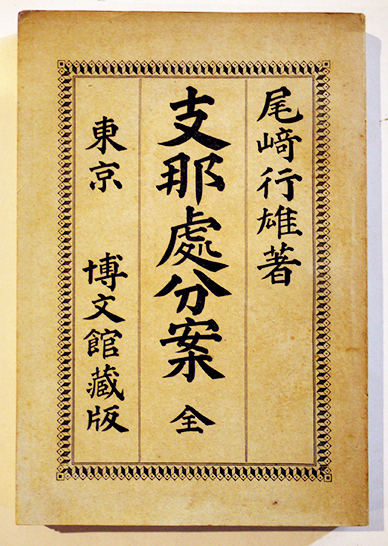 尾﨑行雄著
支那處分案 全
東京 博文館藏版